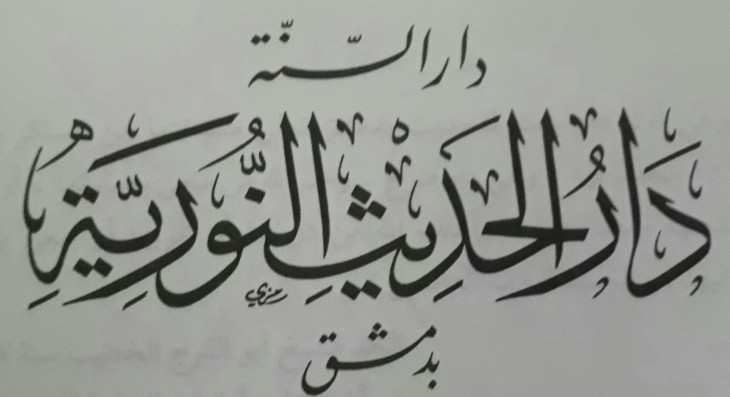 دار السنّة
دَارُ الحَدِيْثِ النُّورِيَّةِ
بدمشق